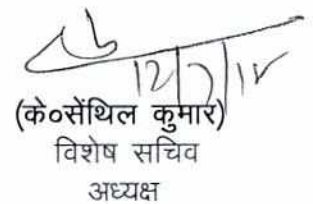 12/7/18
(के०सेंथिल कुमार)
विशेष सचिव
अध्यक्ष